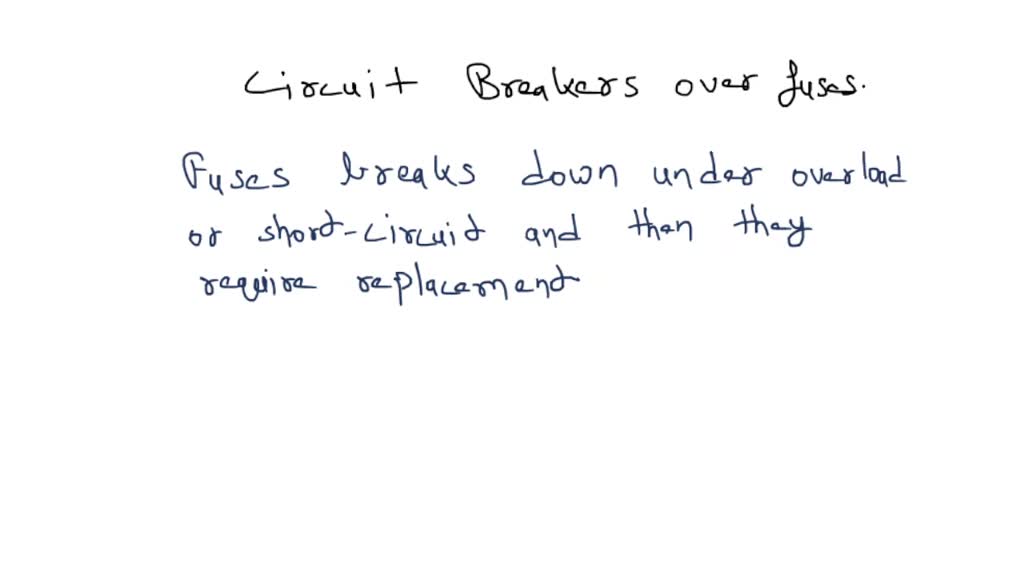 Circuit Breakers over fuses.
Fuses breaks down under overload
or short-circuit and then they
require replacement